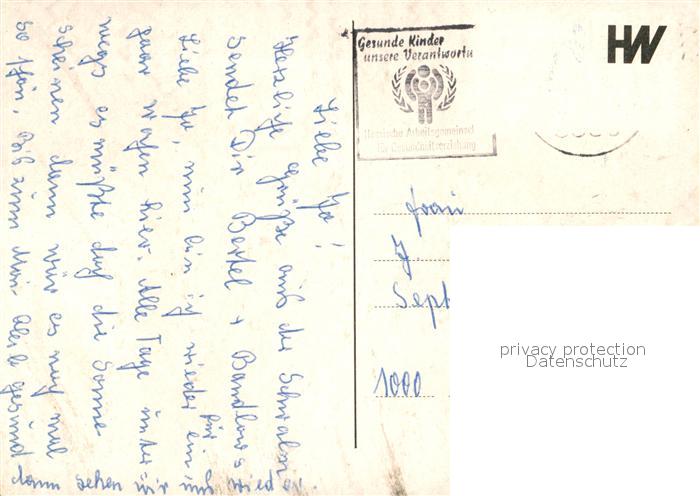 Liebe Jo!
Herzliche Grüße aus der Schwalm
sendet Dir Bertel + Bandlows
Liebe Jo, nun bin ich wieder für ein
paar Wochen hier. Alle Tage unter
wegs es müßte doch die Sonne
scheinen dann wär es noch mal
so schön. Bis zum Mai bleib gesund
dann sehen wir uns wieder.
Gesunde Kinder
unsere Verantwortu
Hessische Arbeitsgemeinsch
für Gesundheitserziehung
HW
Frau
J
Sept
1000
privacy protection
Datenschutz